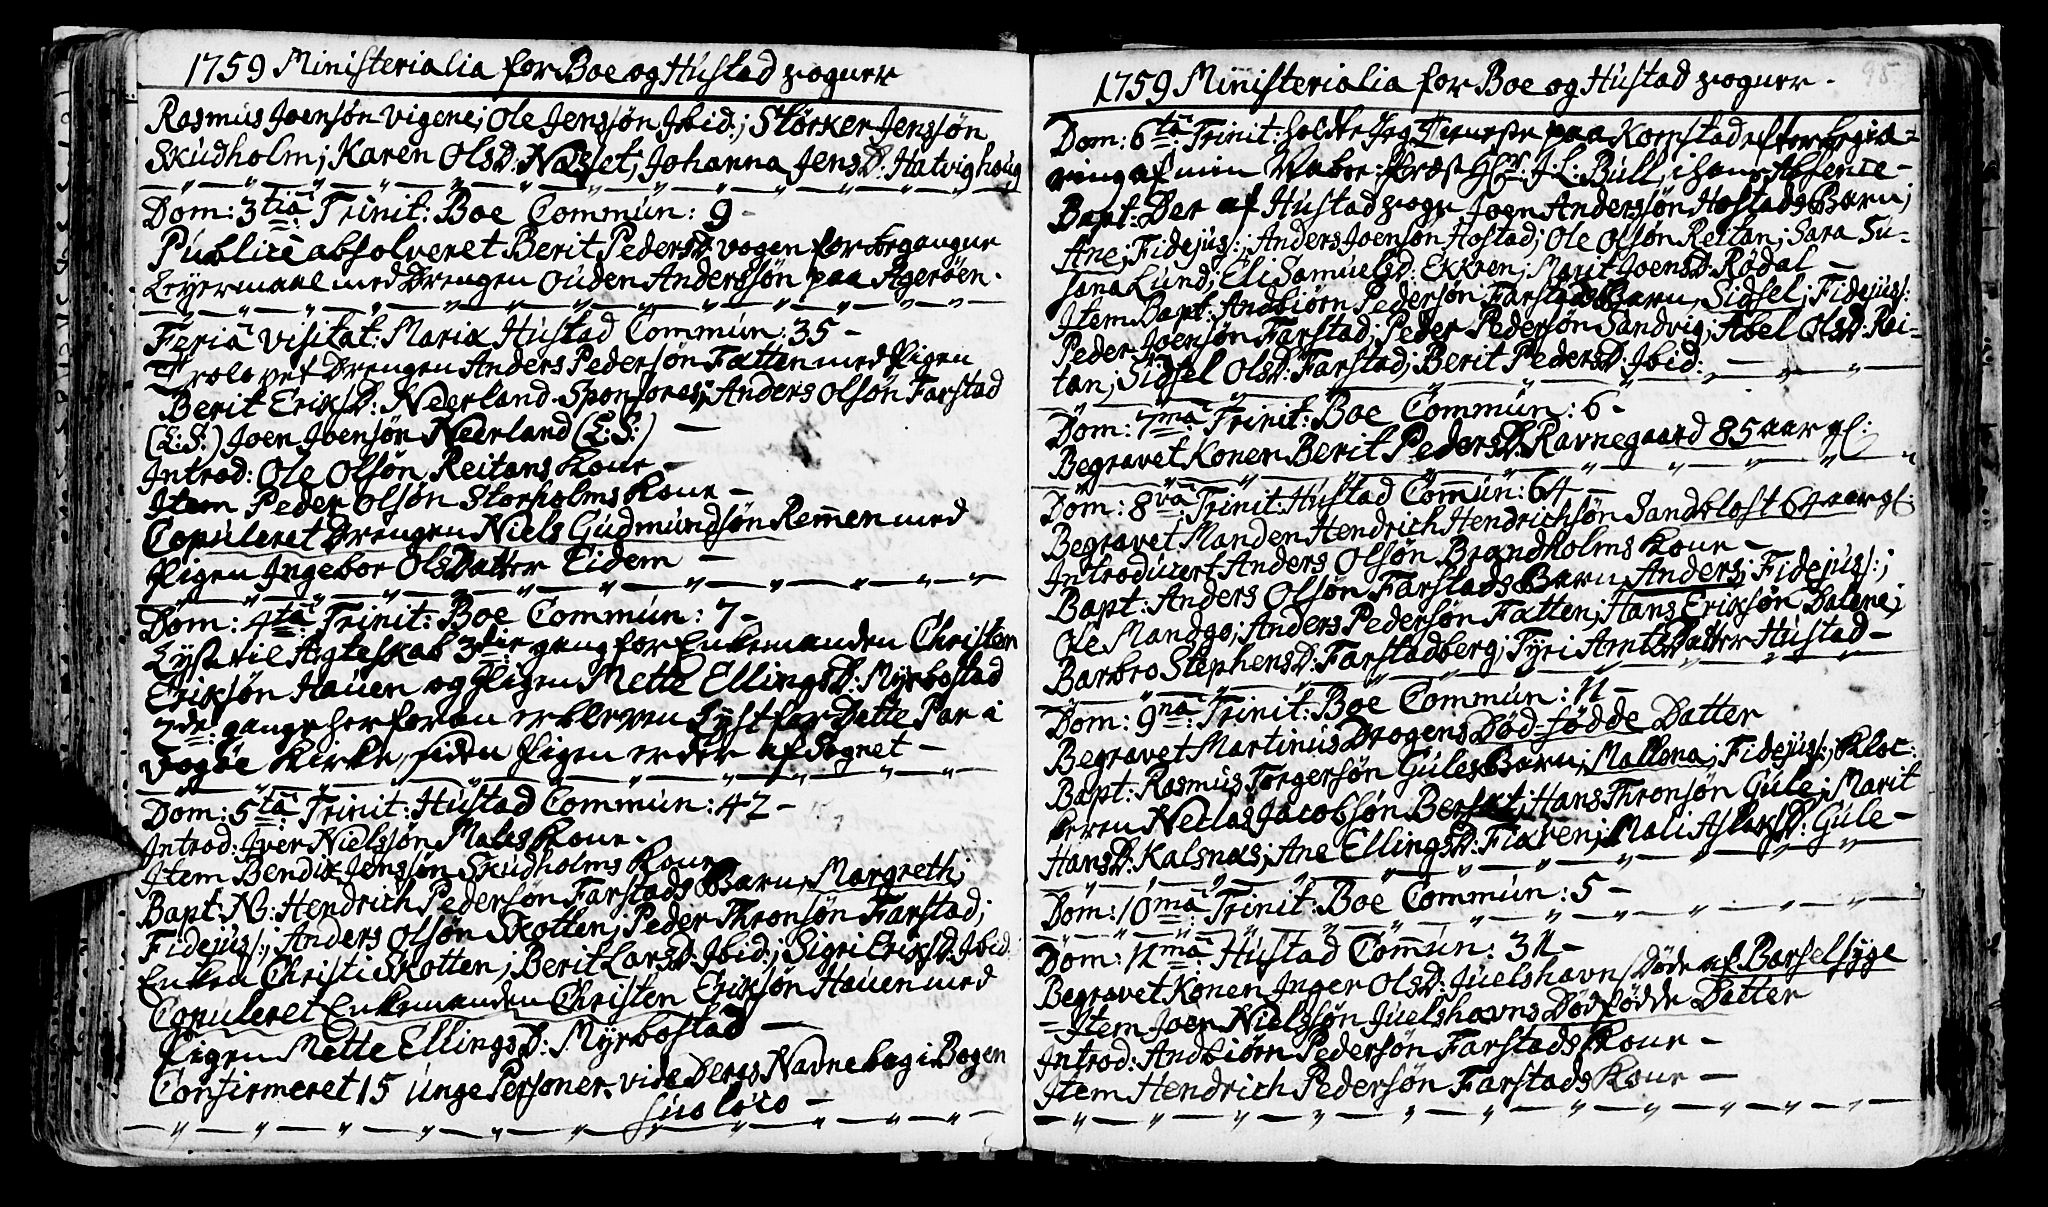 1759 Ministerialia for Boe og Hustad Sogner
Rasmus Joensøn Vigene; Ole Jenssøn Ibid:; Størker Jenssøn
Skudholm; Karen OlsD: Næsset; Johanna JensD: Hatvighoug
Dom: 3tiâ Trinit: Boe Commun: 9 -
Publicè absolveret Berit PedersD: Vogen for begangne
Leyermaal med Drengen Ouden Anderssøn paa Agerøen.
Feriâ Visitat: Mariæ Hustad Commun: 35 -
Trolovet Drengen Anders Pedersøn Fatten med Pigen
Berit EriksD: Neerland. Sponsores; Anders Olsøn Farstad
(L:S:) Joen Joensøn Neerland (L:S:) -
Introd: Ole Olsøn Reitans Kone -
Item Peder Olsøn Storholms Kone -
Copuleret Drengen Niels Gudmundsøn Remmen med
Pigen Ingebor OlsDatter Eidem -
Dom: 4tâ Trinit: Boe Commun: 7 -
Lyst til Ægteskab 3die gang for Enkemanden Christen
Eriksøn Hauen og Pigen Mette EllingsD: Myrbostad
2de gange her foran er bleven Lyst for Dette Par i
Vogøe Kirke, siden Pigen er der af Sognet -
Dom: 5tâ Trinit: Hustad Commun: 42 -
Introd: Iver Nielssøn Males Kone -
Item Bendix Jenssøn Skudholms Kone
Bapt: N: Hendrich Pedersøn Farstads Barn, Margreth;
Fidejuss:; Anders Olsøn Skotten; Peder Thronsøn Farstad;
Enken Christi Skotten; Berit LarsD: Ibid:; Sigri EriksD: Ibid:
Copuleret Enkemanden Christen Eriksøn Hauen med
Pigen Mette EllingsD: Myrbostad -
Confirmeret 15 unge Personer, vide Deres Navne bag i Bogen
suo loco -
95
1759 Ministerialia for Boe og Hustad Sogner -
Dom: 6tâ Trinit: holdte Jeg Tieneste paa Kornstad efter begiæ-
ring af min Nabo-Præst Hr: J: L: Bull, i hans Absence -
Bapt: Der af Hustad Sogn Joen Anderssøn Hostads Barn;
Ane; Fidejuss:; Anders Joensøn Hostad; Ole Olsøn Reitan; Sara Su-
sana Lund; Eli SamuelsD: Ekkren; Marit JoensD: Rødal -
Item Bapt: Andbiørn Pedersøn Farstads Barn, Sidsel; Fidejuss:
Peder Joensøn Farstad; Peder Pedersøn Sandvig; Abel OlsD: Rei-
tan; Sidsel OlsD: Farstad; Berit PedersD: Ibid: -
Dom: 7mâ Trinit: Boe Commun: 6 -
Begravet Konen Berit PedersD: Ravnegaard 85 aar gl:
Dom: 8vâ Trinit: Hustad Commun: 64 -
Begravet Manden Hendrich Hendrichsøn Sandblost 64 aar gl:
Introducert Anders Olsøn Brandholms Kone -
Bapt: Anders Olsøn Farstads Barn Anders; Fidejuss:;
Ole Mandgo; Anders Pedersøn Fatten; Hans Eriksøn Dalene;
Barbro StephensD: Farstadberg; Tyri ArntsDatter Hustad -
Dom: 9nâ Trinit: Boe Commun: 11 -
Begravet Martinus Drogens Død-fødde Datter
Bapt: Rasmus Torgersøn Gules Barn, Mallena; Fidejuss:; Kloc-
keren Neclas Jacobsøn Bersæt; Hans Thronsøn Gule; Marit
HansD: Kalsnæs; Ane EllingsD: Fixven; Mali AslaksD: Gule -
Dom: 10mâ Trinit: Boe Commun: 5 -
Dom: 11mâ Hustad Commun: 31 -
Begravet Konen Inger OlsD: Juelshavn / Døde af Barselsyge
= Item Joen Nielssøn Juelshavns Dødfødde Datter
Introd: Andbiørn Pedersøn Farstads Kone -
Item Hendrich Pedersøn Farstads Kone -